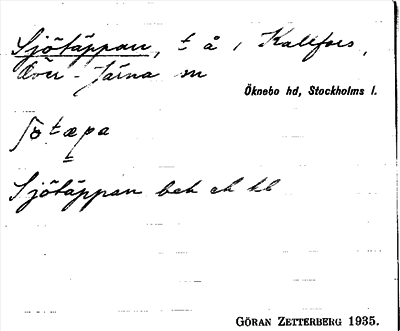 Sjötäppan, t å 1 Kallfors,
Över-Järna sn
Öknebo hd, Stockholms l.
ʃötæpa
Sjötäppan bek ek kb
GÖRAN ZETTERBERG 1935.